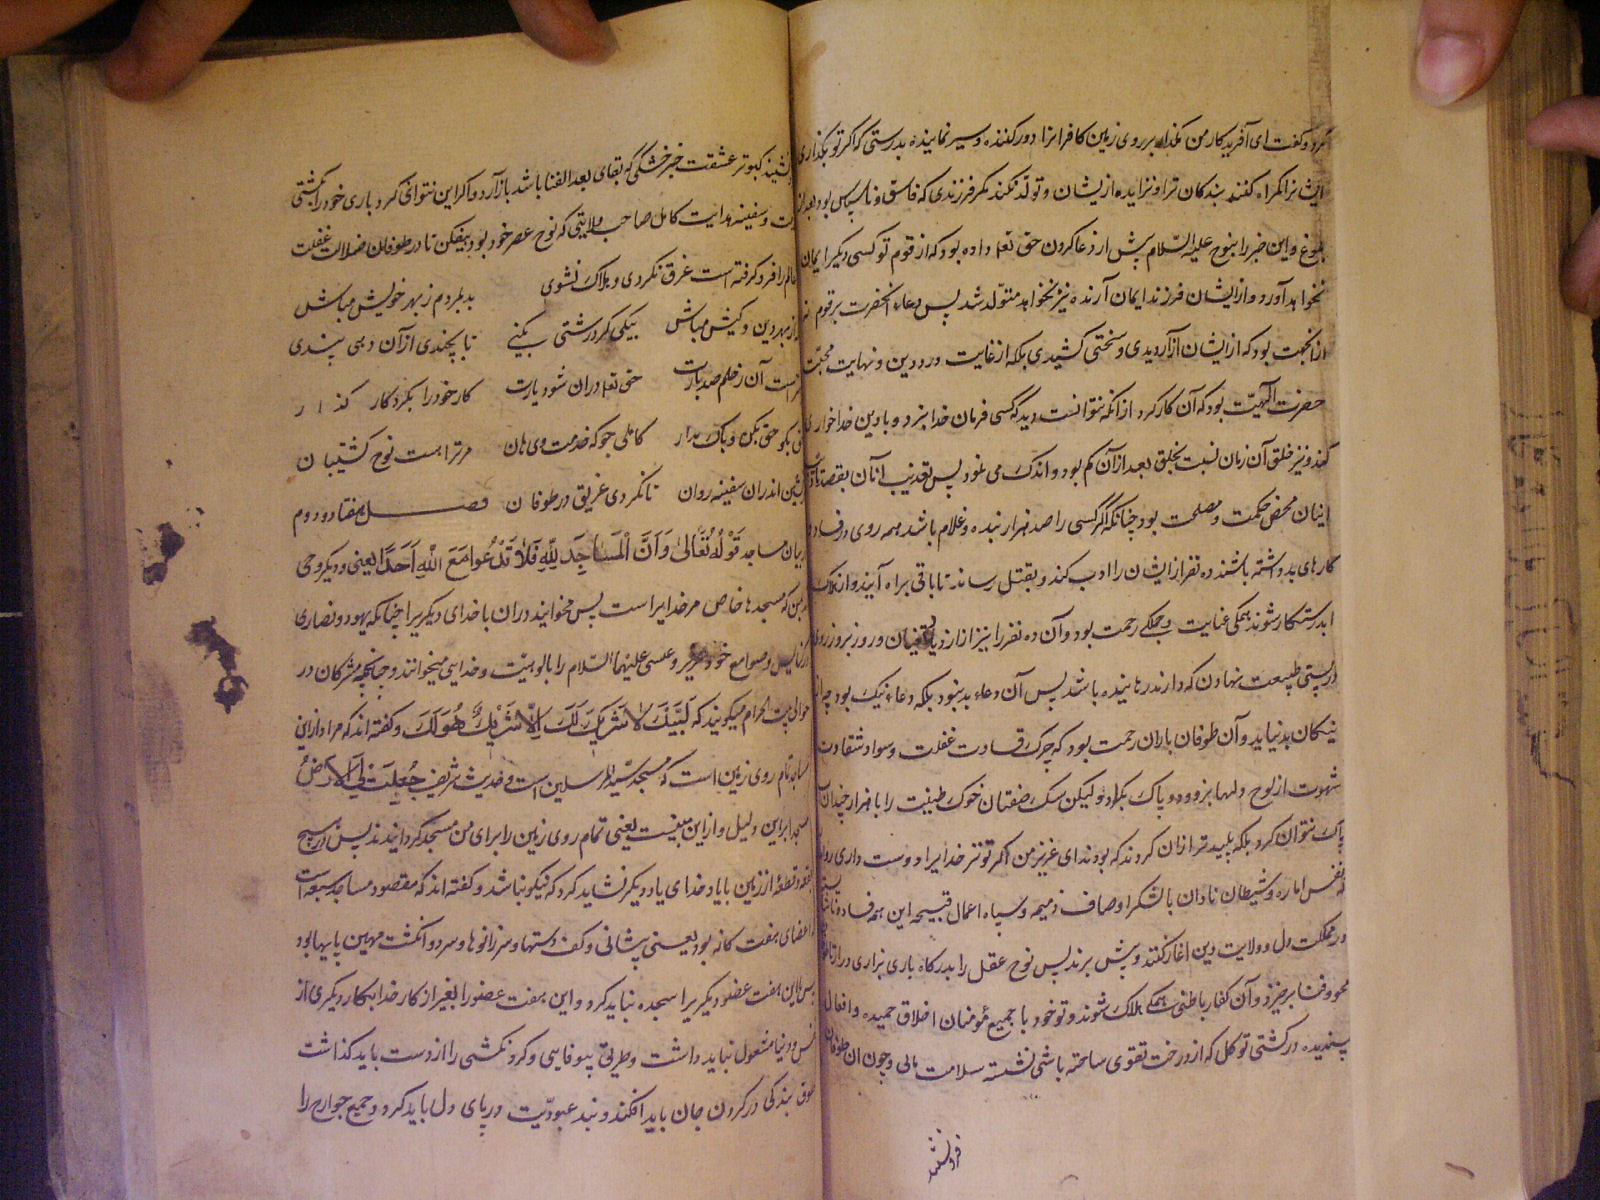 کرد و گفت ای آفریدکار من مگذار بر روی زمین کافرانرا دور کننده و سیر نماینده بدرستی که اگر تو بگذاری
ایشانرا گمراه کنند بندکان ترا و نزایده ازیشان و تولد نکند مگر فرزندی که فاسق و ناسپاس بود بعد از
بلوغ و این خبر را بنوح علیه السلام پیش از دعا کردن حق تعالی داده بود که از قوم تو کسی دیگر ایمان
نخواهد آورد و از ایشان فرزند ایمان آرنده نیز نخواهد متولد شد پس دعاء آنحضرت بر قوم نه
از آنجهت بود که از ایشان آزار دیدی و سختی کشیدی بلکه از غایت درد دین و نهایت محبت
حضرت الهیت بود که آن کار کرد از آنکه نتوانست دید که کسی فرمان خدا نبرد و با دین خدا خواری
کند و نیز خلق آن زمان نسبت بخلق بعد از آن کم بود و اندک می نمود پس تعذیب آنان بقصد تأدیب
اینان محض حکمت و مصلحت بود چنانکه اگر کسی را صد هزار بنده و غلام باشد همه روی در فساد و
کارهای بد داشته باشند ده نفر از ایشان را ادب کند و بقتل رساند تا باقی براه آیند و از هلاک
ابد رستکار شوند همکی عنایت و جملکی رحمت بود و آن ده نفر را نیز از ازدیاد طغیان و روز بروز
در پستی طبیعت نهادن که دارند رهاینده باشد پس آن دعاء بد نبود بلکه دعاء نیک بود چه از
نیکان بد نیاید و آن طوفان باران رحمت بود که چرک قساوت غفلت و سواد شقاوت
شهوت از لوح دلها بزدوده و پاک بکرد و لیکن سک صفتان خوک طینت را با هزار چندان
پاک نتوان کرد بلکه پلید تر از ان کردند که بودند ای عزیز من اگر تو نیز خدایرا دوست داری
که نفس اماره و شیطان نادان با لشکر اوصاف ذمیمه و سپاه اعمال قبیحه این همه فساد
در مملکت دل و ولایت دین آغاز کنند و پیش برند پس نوح عقل را بدرکاه باری بزاری درآر تا طوفان
محو و فنا برخیزد و آن کفار باطنی همکی هلاک شوند و تو خود با جمیع مؤمنان اخلاق حمیده و افعال
پسندیده در کشتی توکل که از درخت تقوی ساخته باشی نشسته سلامت مانی و چون آن طوفان
فرو نشیند
فرو نشیند کبوتر عشقت خبر خشکی که بقای بعد الفنا باشد باز آرد و اگر این نتوانی کرد باری خود را بکشتی
و سفینه هدایت کامل صاحب ولایتی که نوح عصر خود بود بیفکن تا در طوفان ضلالت غفلت
عالم را فرو کرفته است غرق نکردی و هلاک نشوی
از بهر دین و کیش مباش نیکی کر درشتی بکنی بد بمردم ز بهر خویش مباش
آن ز خلم صد بارت حق تعالی دران شود یارت تا بچندی از آن دمی پندی
حق بکن و باک مدار کاملی جو که خدمت وی هان کار خود را بکردکار کذار
بنشین اندران سفینه روان تا نکردی غریق در طوفان مر ترا هست نوح کشتیبان
فصل هفتاد و دوم
در بیان مساجد قوله تعالی وَاَنَّ الْمَسَاجِدَ لِلّٰهِ فَلَا تَدْعُوا مَعَ اللّٰهِ اَحَدًا یعنی و دیکر وحی
من که مسجدها خاص مر خدایراست پس مخوانید دران با خدای دیکریرا چنانکه یهود و نصاری
در کنایس و صوامع خود عزیر و عیسی علیهما السلام را بالوهیت و خدایی میخوانند و چنانچه مشرکان در
حوالی بیت الحرام میکویند که لَبَّیْکَ لَا شَرِیکَ لَکَ اِلَّا شَرِیْکٌ هُوَ لَکَ و کفته اند که مراد از این
مساجد تمام روی زمین است که مسجد سید المرسلین است و حدیث شریف جُعِلَتْ لِیَ الْاَرْضُ
مسجدا برین دلیل و ازین مبینست یعنی تمام روی زمین را برای من مسجد کردانیدند پس در هیچ
بقعه و قطعه از زمین با یاد خدای یاد دیکر نشاید کرد که نیکو نباشد و کفته اند که مقصود مساجد سبعه است
که اعضای هفت کانه بود یعنی پیشانی و کف دستها و سر زانوها و سر دو انکشت مهین پایها بود
پس باین هفت عضو دیکریرا سجده نباید کرد و این هفت عضو را بغیر از کار خدا بکار دیکری از
نفس و دنیا مشغول نباید داشت و طریق بیوفایی و کردنکشی را از دست باید کذاشت
طوق بندکی در کردن جان باید افکند و بند عبودیت در پای دل باید کرد و جمیع جوارح را